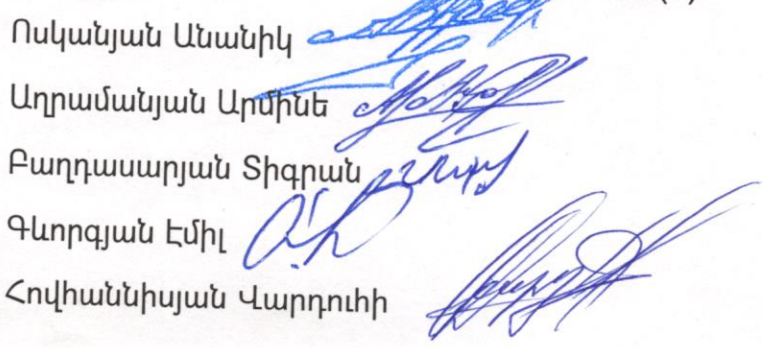 Ոսկանյան Անանիկ
Աղրամանյան Արմինե
Բաղդասարյան Տիգրան
Գևորգյան Էմիլ
Հովհաննիսյան Վարդուհի